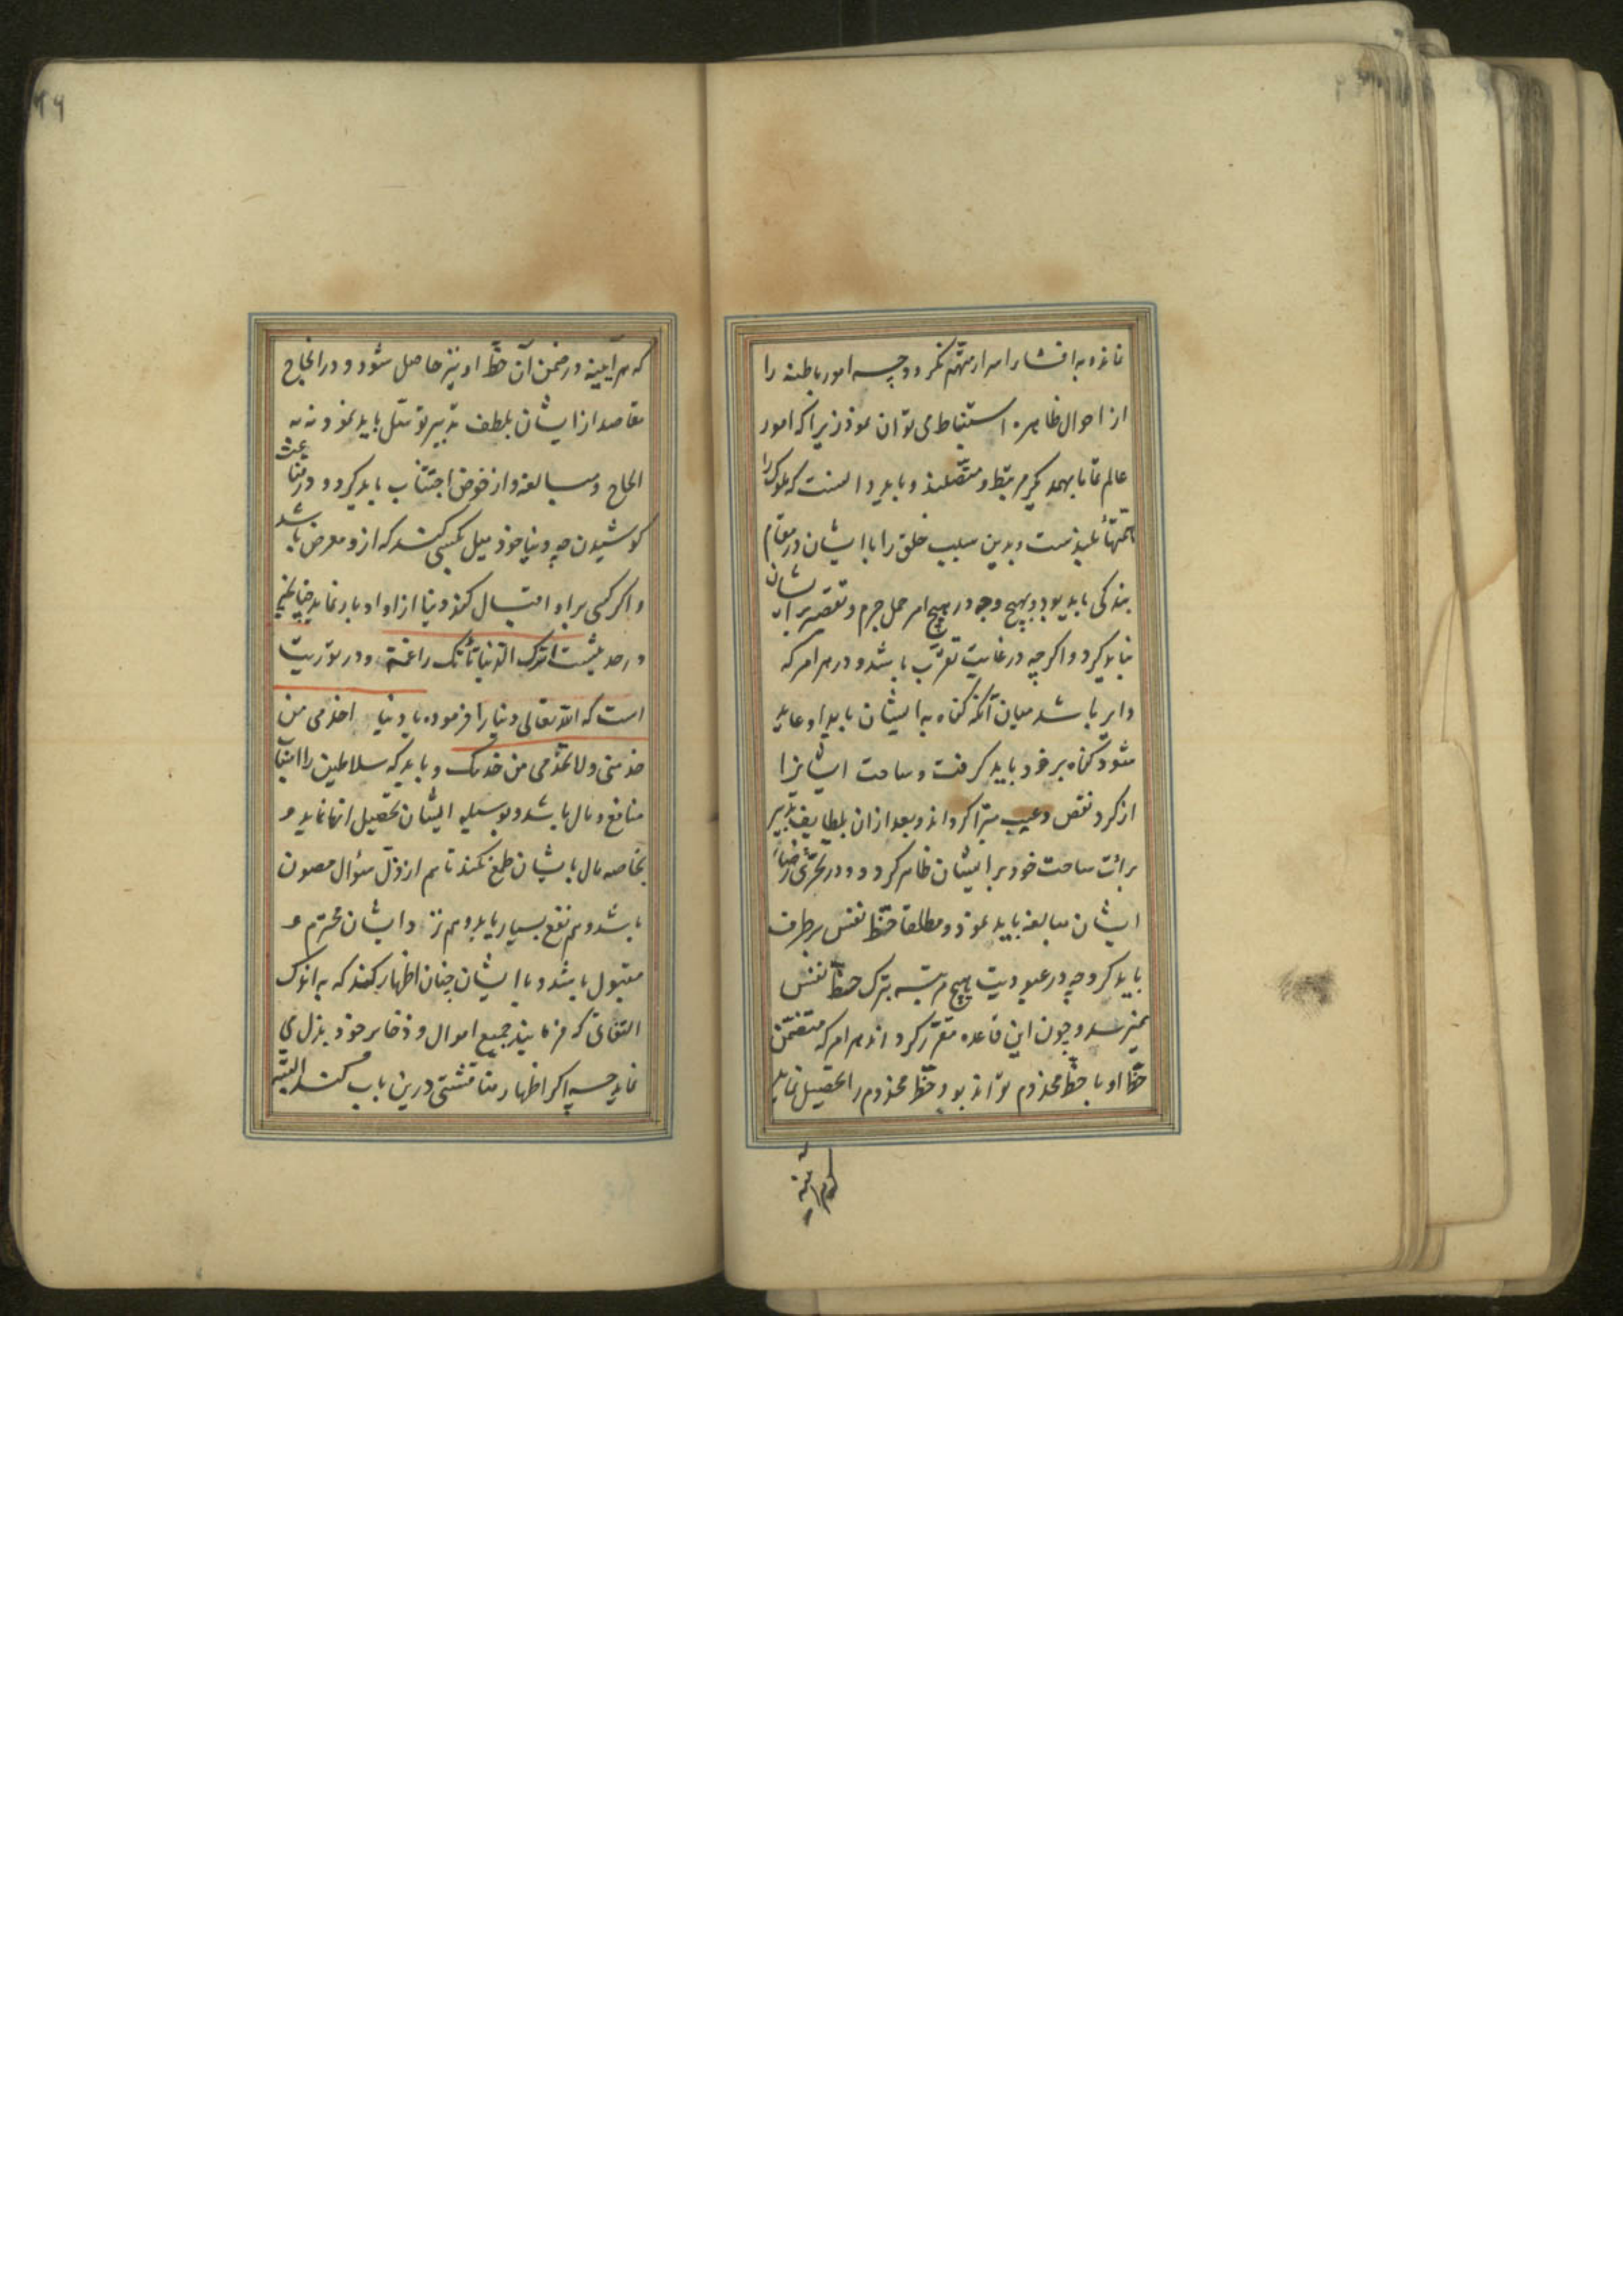 نانده به افشاء اسرار متهم نکردد چه امور باطنه را
از احوال ظاهره استنباط می توان نمود زیرا که امور
عالم تمامها بهمدیکر مرتبط و متصلند و باید دانست که ملوک را
همتهاء بلندست و بدین سبب خلق را با ایشان در مقام
بندکی باید بود و بهیچ وجه در هیچ امر حمل جرم و تقصیر بر ایشان
نباید کرد و اکرچه در غایت تقرب باشد و در هر امر که
دایر باشد میان آنکه کناه به ایشان یا بدو عاید
شود کناه بر خود باید کرفت و ساحت ایشانرا
از کرد نقص و عیب مبرا کرداند و بعد از ان بلطایف تدبیر
برائت ساحت خود بر ایشان ظاهر کردد و در تحری رضاء
ایشان مبالغه باید نمود و مطلقا حظ نفس برطرف
باید کرد چه در عبودیت هیچ مرتبه بترک حظ نفس
نمیرسد و چون این قاعده مقرر کرداند هر امر که متضمن
حظ او با حظ مخدوم تواند بود حظ مخدوم را تحصیل نماید
که هرآینه
که هرآیینه در ضمن آن حظ او نیز حاصل شود و در انجاح
مقاصد از ایشان بلطف تدبیر توسل باید نمود نه به
الحاح و مبالغه و از خوض اجتناب باید کرد و در قناعت
کوشیدن چه دنیا خود میل بکسی کند که ازو معرض باشد
و اکر کسی بر او اقبال کند دنیا ازاو ادبار نماید چنانچه
در حدیثست اترک الدنیا تأتک راغمة و در توریت
است که الله تعالی دنیا را فرموده یا دنیا اخدمی من
خدمنی و لا تخدمی من خدمک و باید که سلاطین را اسباب
منافع و مال باشد و بوسیله ایشان تحصیل انها نماید و
بخاصه مال بایشان طمع نکند تا هم از ذل سؤال مصون
باشد و هم نفع بسیار یابد و هم نزد ایشان محترم و
مقبول باشد و با ایشان چنان اظهار کند که به اندک
التفاتی که فرمایند جمیع اموال و ذخایر خود بذل می
نماید چه اکر اظهار مناقشتی درین باب کند البته